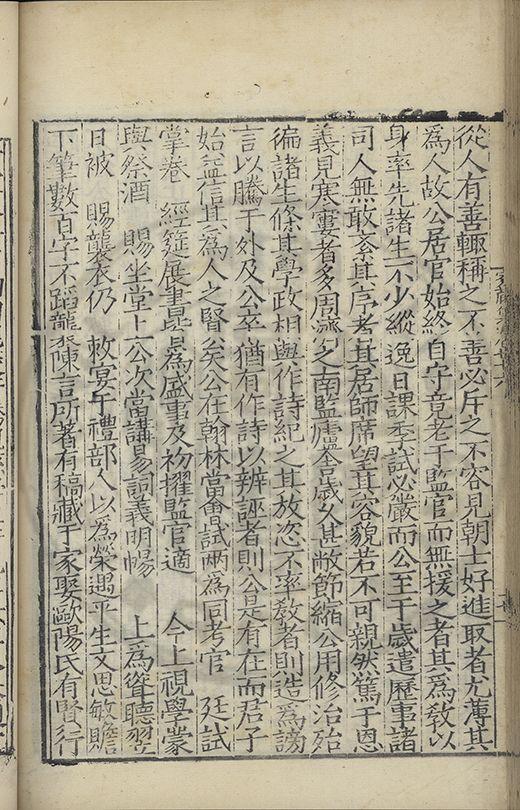 從人有善輙稱之不善必斥之不容見朝士好進取者尤薄其
為人故公居官始終自守竟老于監官而無援之者其為敎以
身率先諸生不少縱逸日課季試必嚴而公至于歲遣歷事諸
司人無敢紊其序者其居師席望其容貌若不可親然篤于恩
義見寒寠者多周濟之南監廬舍歲久甚敝節縮公用修治殆
徧諸生條其學政相與作詩紀之其放恣不率敎者則造為謗
言以騰于外及公卒猶有作詩以辨誣者則公是有在而君子
始益信其為人之賢矣公在翰林當會試兩為同考官 廷試
掌卷 經筵展書㫤為盛事及初擢監官適 今上視學蒙
與祭酒 賜坐堂上公次當講易詞義明暢 上為聳聽翌
日被 賜襲衣仍 敕宴于禮部人以為榮遇平生文思敏贍
下筆數百字不蹈襲陳言所著有稿藏于家娶歐陽氏有賢行